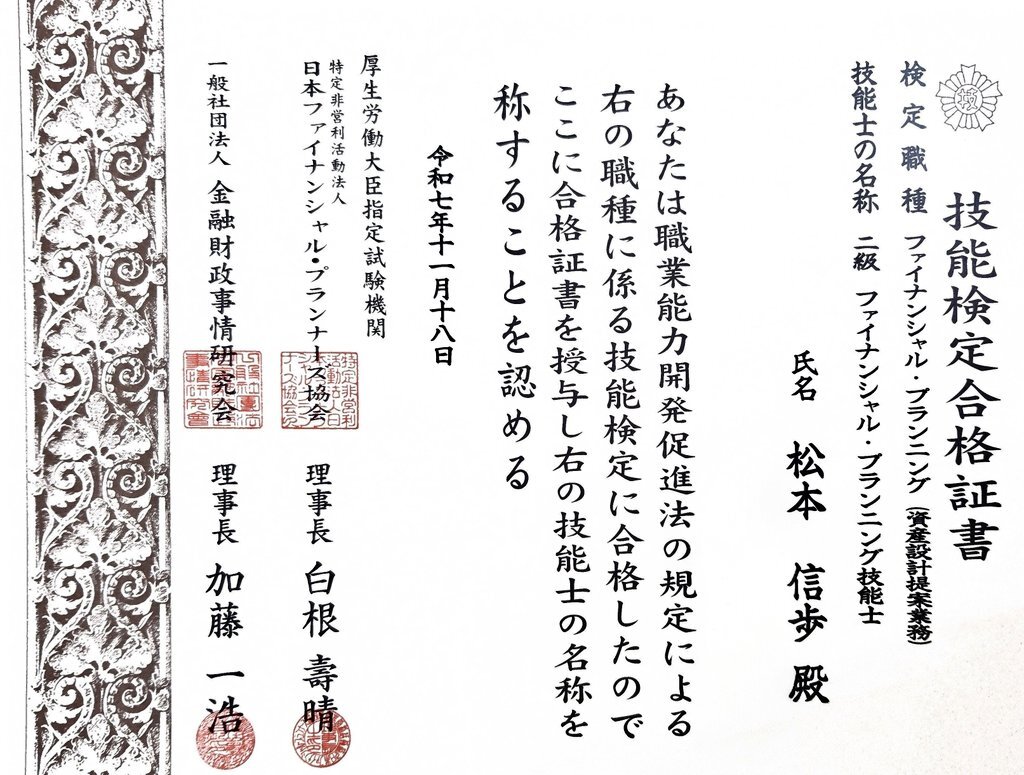 技能検定合格証書
検定職種 ファイナンシャル・プランニング(資産設計提案業務)
技能士の名称 二級 ファイナンシャル・プランニング技能士
氏名 松本 信歩 殿
あなたは職業能力開発促進法の規定による
右の職種に係る技能検定に合格したので
ここに合格証書を授与し右の技能士の名称を
称することを認める
令和七年十一月十八日
厚生労働大臣指定試験機関
特定非営利活動法人
日本ファイナンシャル・プランナーズ協会 理事長 白根 壽晴
一般社団法人 金融財政事情研究会 理事長 加藤 一浩